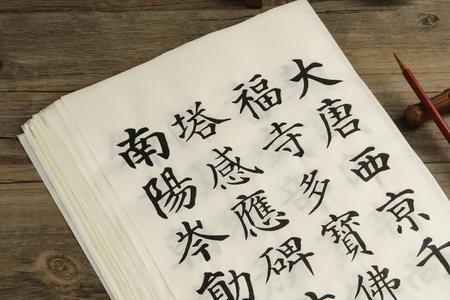 大唐西京千
福寺多寶佛
塔感應碑
南陽岑勛